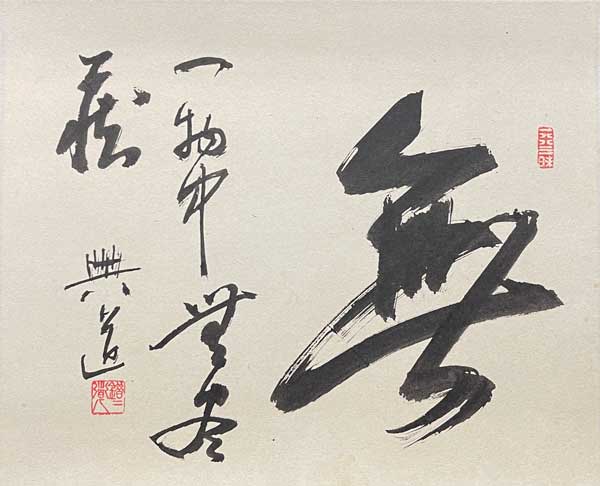 無
一物中無尽
蔵
典道